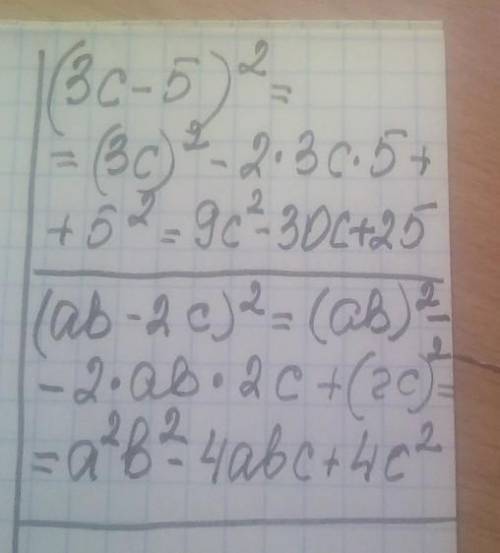 (3c-5)²=
=(3c)²-2·3c·5+
+5²=9c²-30c+25
(ab-2c)²=(ab)²-
-2·ab·2c+(2c)²=
=a²b²-4abc+4c²